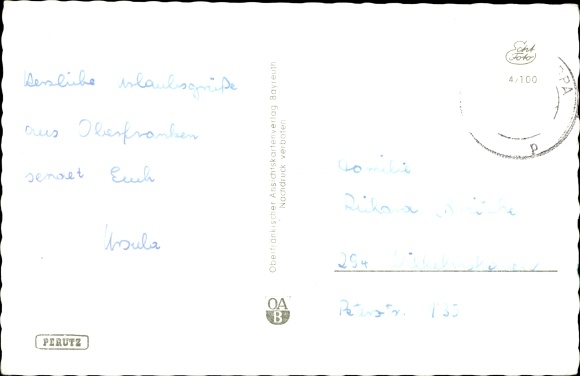 Herzliche Urlaubsgrüße
aus Oberfranken
sendet Euch
Ursula
PERUTZ
Oberfränkischer Ansichtskartenverlag Bayreuth
Nachdruck verboten
OA
B
Echt
Foto
4/100
p
Familie
Richard
294 Wilhelmshaven
Peterstr. 135